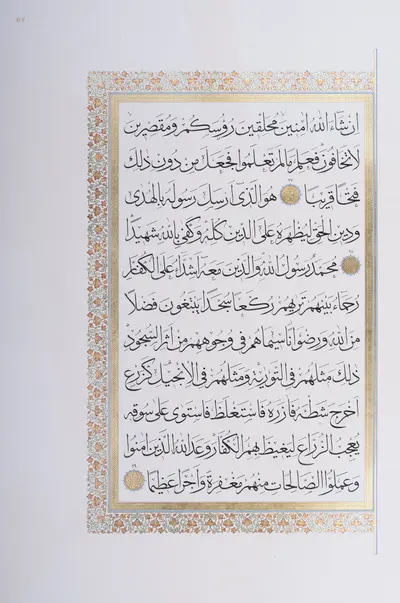 إن شاء الله آمنين محلقين رؤسكم ومقصرين
لا تخافون فعلم ما لم تعلموا فجعل من دون ذلك
فتحا قريبا ٢٧ هو الذي أرسل رسوله بالهدى
ودين الحق ليظهره على الدين كله وكفى بالله شهيدا
٢٨ محمد رسول الله والذين معه أشداء على الكفار
رحماء بينهم تريهم ركعا سجدا يبتغون فضلا
من الله ورضوانا سيماهم في وجوههم من أثر السجود
ذلك مثلهم في التورية ومثلهم في الإنجيل كزرع
أخرج شطه فآزره فاستغلظ فاستوى على سوقه
يعجب الزراع ليغيظ بهم الكفار وعد الله الذين آمنوا
وعملوا الصالحات منهم مغفرة وأجرا عظيما ٢٩